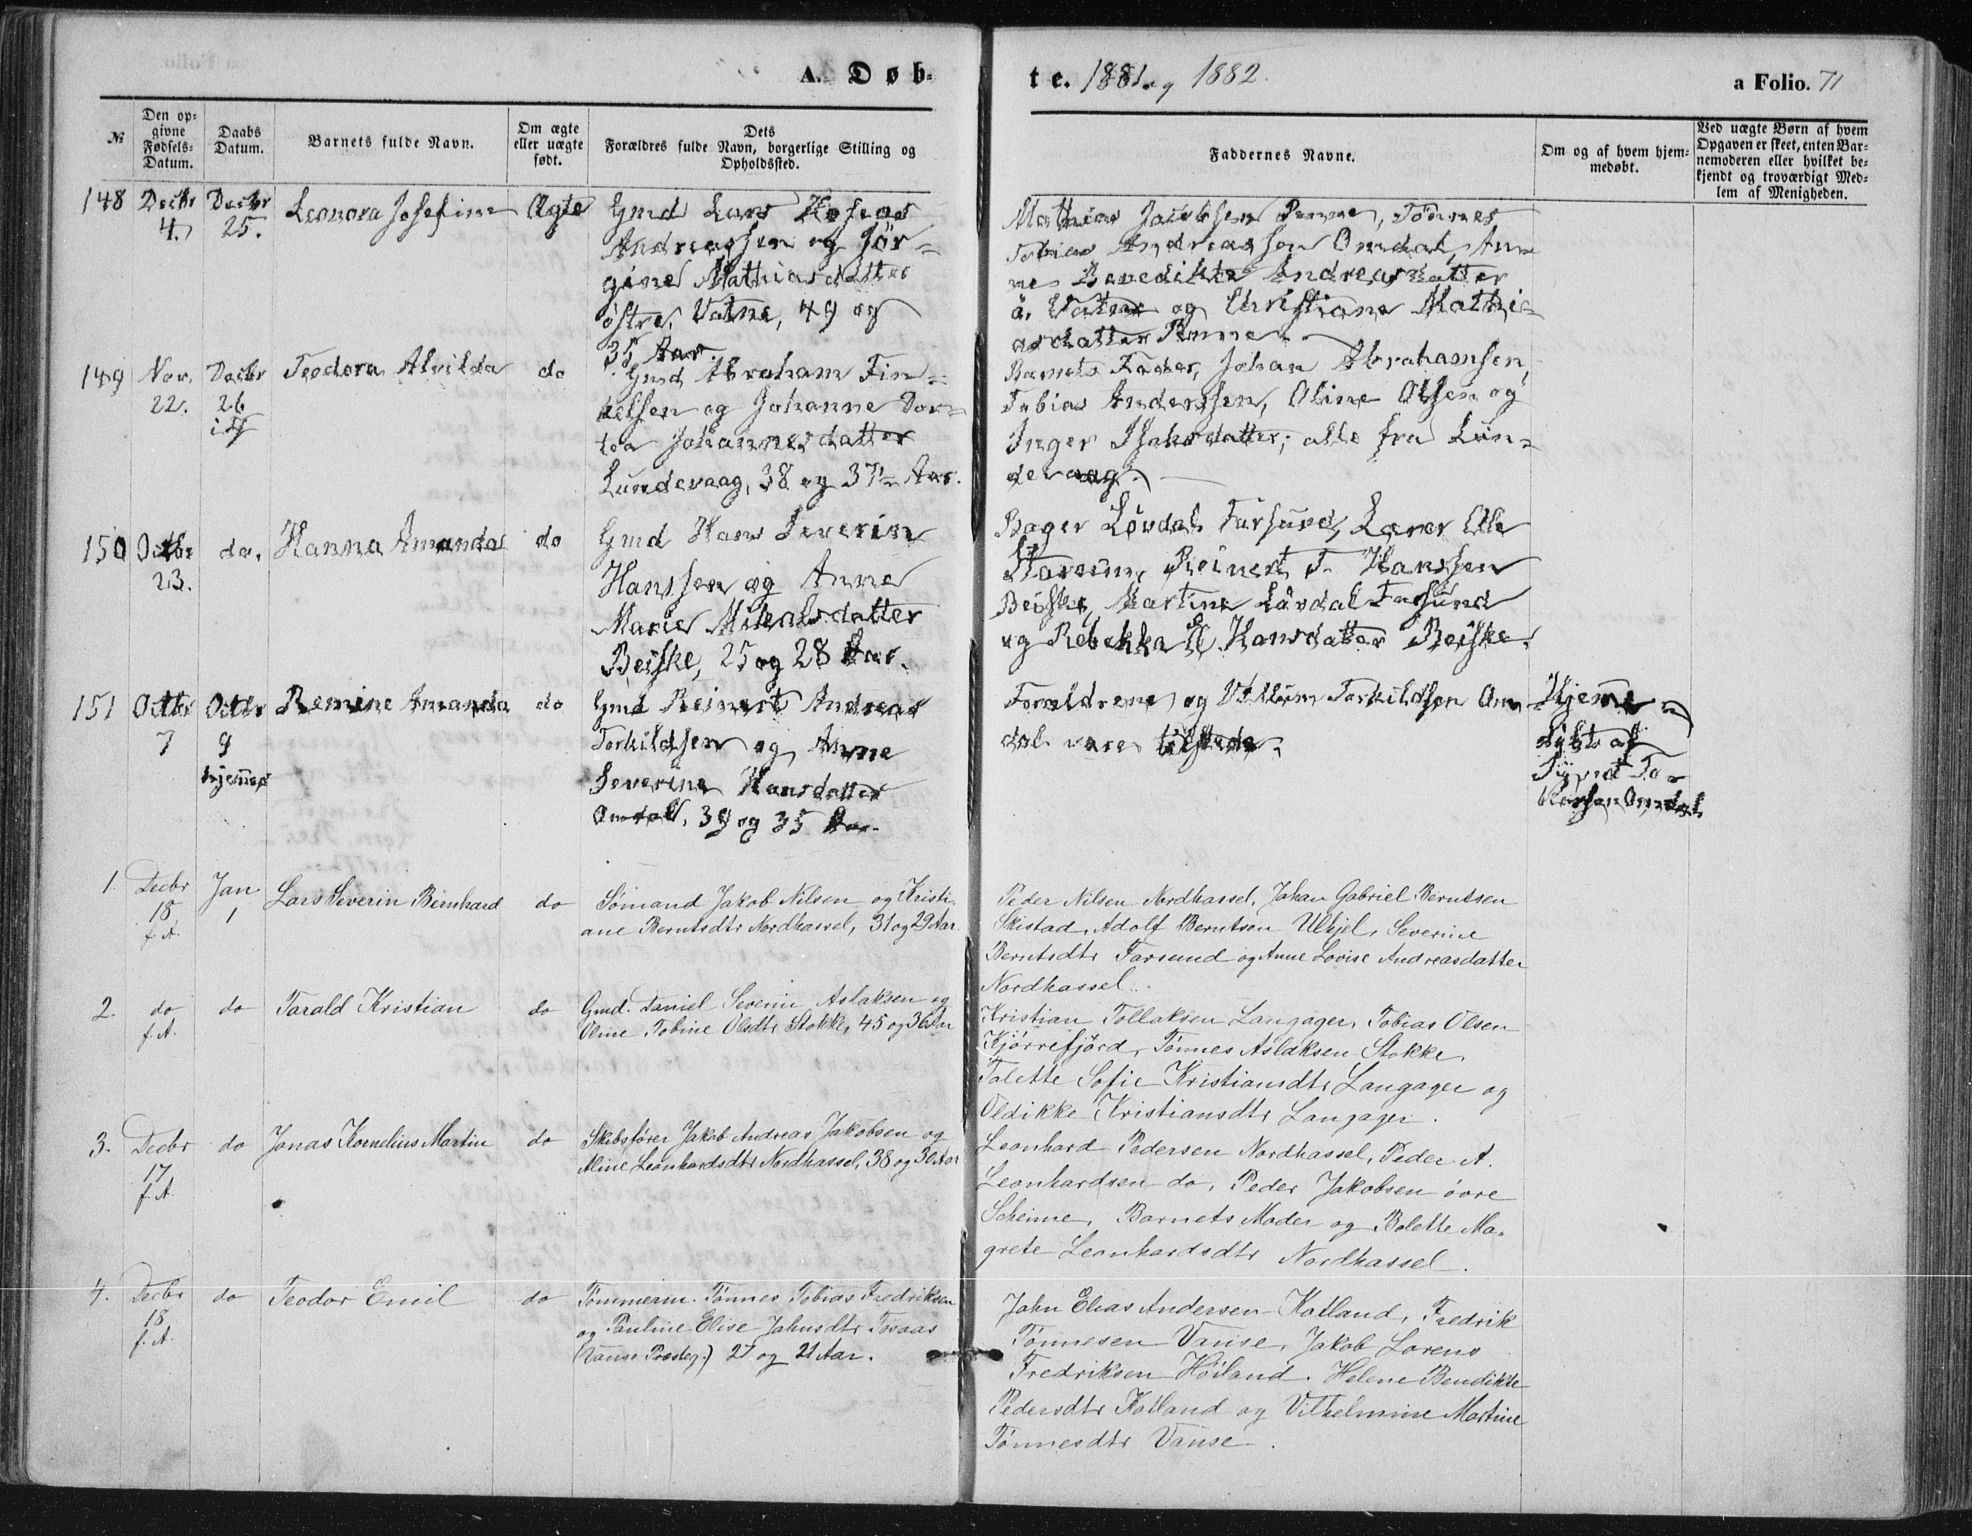 A. Døb-
te. 1881 og 1882.
a Folio. 71
№
Den op-
givne
Fødsels-
Datum.
Daabs
Datum.
Barnets fulde Navn.
Om ægte
eller uægte
født.
Dets
Forældres fulde Navn, borgerlige Stilling og
Opholdssted.
Faddernes Navne.
Om og af hvem hjem-
medøbt.
Ved uægte Børn af hvem
Opgaven er skeet, enten Bar-
nemoderen eller hvilket be-
kjendt og troværdigt Med-
lem af Menigheden.
148
Decbr
4.
Decbr
25.
Leonora Josefine
Ægte
Gmd Lars Hoseas
Andreassen og Jør-
gine Mathiasdatter
østre. Vatne, 49 og
35 Aar.
Mathias Jacobsen Penne, Tönnes
Tobias Andreassen Omdal, An-
ne Benedikte Andreasdatter
ö. Vatne og Christiane Mathi-
asdatter Penne.
149
Nov.
22.
Decbr
26
Teodora Alvilda
do
Gmd Abraham Fin-
kelsen og Johanne Dor-
tea Johannesdatter
Lundevaag, 38 og 37 1/2 Aar.
Barnets Fader, Johan Abrahamsen,
Tobias Anderssen, Oline Olsen og
Inger Isaksdatter; alle fra Lun-
devaag.
150
Octbr
23.
do.
Hanna Amanda
do
Gmd Hans Severin
Hanssen og Anne
Marie Mikalsdatter
Beiske, 25 og 28 Aar.
Bager Lövdal Farsund, Lærer Elle
Stareim, Reinert T. Hanssen
Beiske, Martine Lövdal Farsund
og Rebekka Hansdatter Beiske.
151
Octbr
7
Octbr
9
hjemme
Remine Amanda
do
Gmd Reinert Andreas
Torkildsen og Anne
Severine Hansdatter
Omdal, 39 og 35 Aar.
Forældrene og Torkildsen Om-
dal vare tilstede.
Hjemme-
døbt af
Sigvart To-
Omdal
1.
Decbr
18
f. A.
Jan
1
Lars Severin Bernhard
do
Sømand Jakob Nilsen og Kristi-
ane Berntsdtr Nordhassel, 31 og 29 Aar
Peder Nilsen Nordhassel, Johan Gabriel Berntsen
Skistad, Adolf Berntsen Ulhjel, Severine
Berntsdtr Farsund og Anne Lovise Andreasdatter
Nordhassel.
2.
do
f. A.
do
Tarald Kristian
do
Gmd. Daniel Severin Aslaksen og
Oline Tobine Olsdtr Stokke, 45 og 36 Aar
Kristian Tollaksen Langager, Tobias Olsen
Kjørrefjord, Tønnes Aslaksen Stokke,
Talette Sofie Kristiansdtr Langager og
Oldikke Kristiansdtr Langager.
3.
Decbr
17
f. A.
do
Jonas Kornelius Martin
do
Skibsfører Jakob Andreas Jakobsen og
Aline Leonhardsdtr Nordhassel, 38 og 30 Aar
Leonhard Pedersen Nordhassel, Peder A.
Leonhardsen do, Peder Jakobsen övre
Skeime, Barnets Moder og Bolette Ma-
grete Leonhardsdtr Nordhassel.
4.
Decbr
18
f. A.
do
Teodor Emil
do
Tømmerm. Tønnes Tobias Fredriksen
og Pauline Elise Jahnsdtr Tosaas
(Vanse Presteg.) 27 og 21 Aar.
John Elias Andersen Katland, Fredrik
Tønnesen Vanse, Jakob Lorens
Fredriksen Høiland. Helene Bendikte
Pedersdtr Katland og Vilhelmine Martine
Tønnesdtr Vanse.